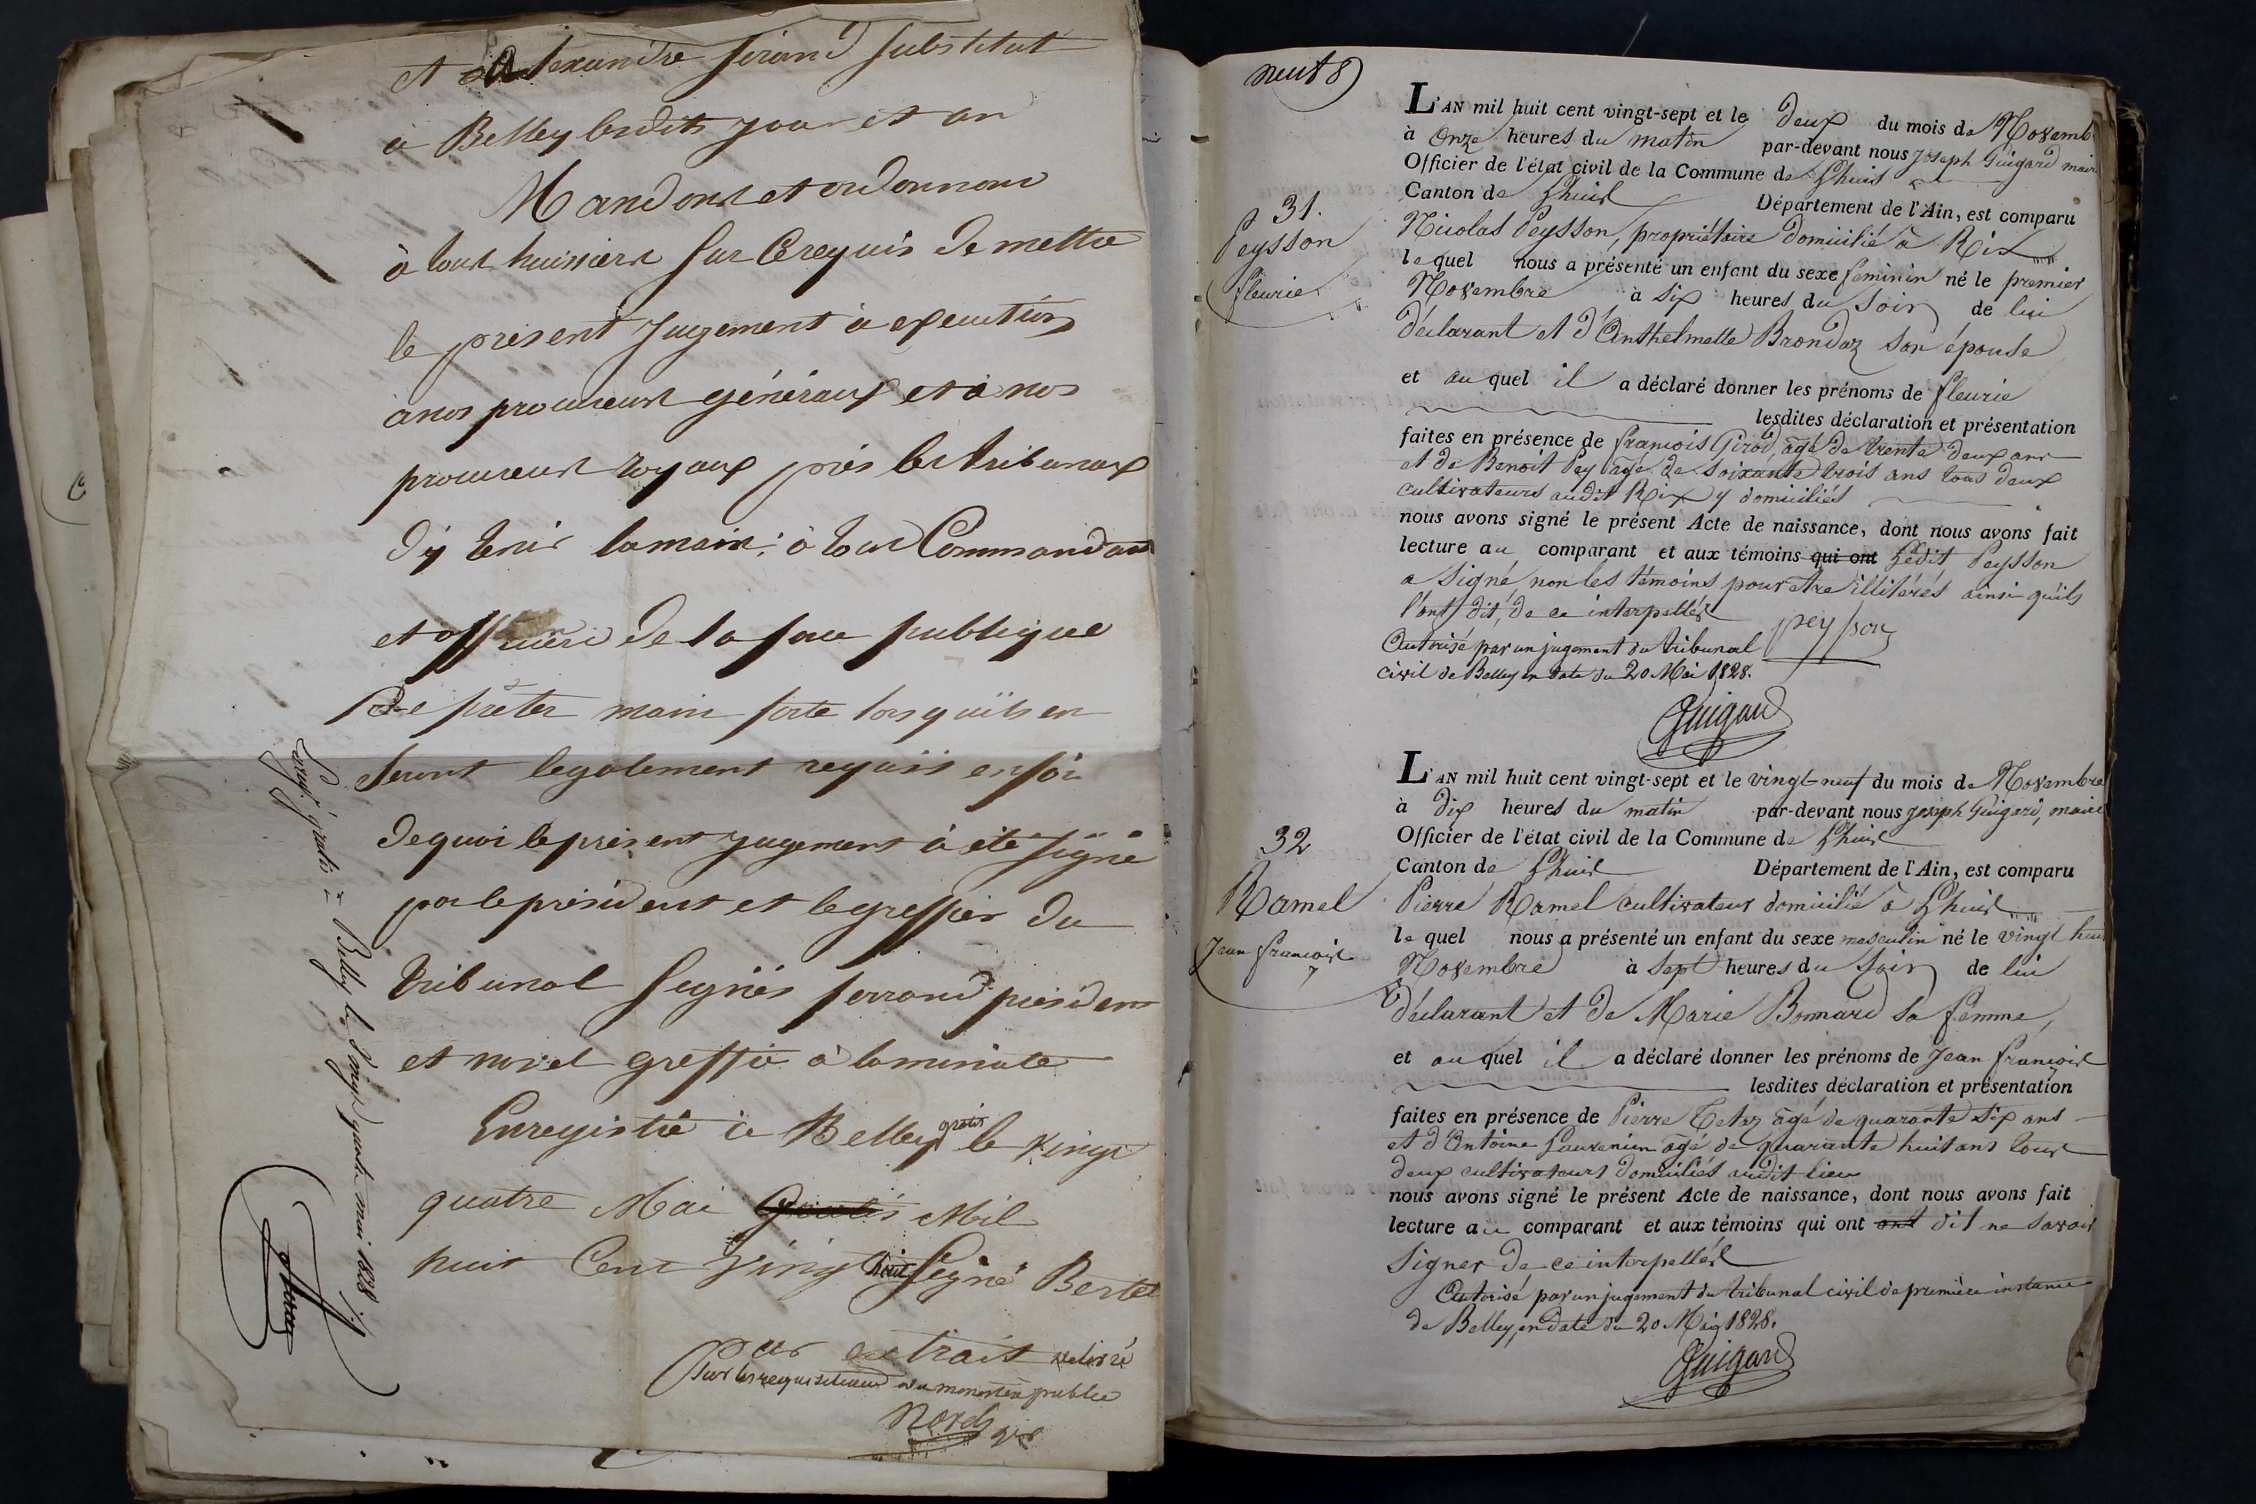 et Alexandre Sirand substitut
à Belley lesdits jour et an
Mandons et ordonnons
à tous huissiers sur ce requis de mettre
le présent jugement à execution
à nos procureurs généraux et à nos
procureurs royaux près les tribunaux
d'y tenir la main: à tous Commandans
et officiers de la force publique
de preter main forte lorsqu'ils en
seront legalement requis en foi
de quoi le présent jugement à été signé
par le président et le greffier du
tribunal Signés ferrand président
et morel greffier à la minute
Enregistré à Belley gratis le vingt
quatre Mai Gratis Mil
huit Cent vingt huit Signé Bertet
Par extrait délivré
Sur les requisitions du ministère public
Morel gr
Enregt. gratis à Belley le vingt quatre mai 1828
neuf 8
31.
Peysson
fleurie
L'AN mil huit cent vingt-sept et le deux du mois de Novemb
à Onze heures du matin par-devant nous Joseph Guigard maire
Officier de l'état civil de la Commune de Lhuis
Canton de Lhuis Département de l'Ain, est comparu
Nicolas Peysson, propriétaire domicilié à Rix
lequel nous a présenté un enfant du sexe feminin né le premier
Novembre à six heures du soir de lui
déclarant et d'Anthelmette Brondaz son épouse
et auquel il a déclaré donner les prénoms de fleurie
lesdites déclaration et présentation
faites en présence de francois Girod, âgé de trente deux ans
et de Benoit Pey âgé de soixante trois ans tous deux
cultivateurs audit Rix y domiciliés
nous avons signé le présent Acte de naissance, dont nous avons fait
lecture au comparant et aux témoins qui ont Ledit Peysson
a signé non les témoins pour etre illitérés ainsi qu'ils
l'ont dit, de ce interpellés
peysson
Autorisé par un jugement du tribunal
civil de Belley en date du 20 Mai 1828.
Guigard
32
Ramel
Jean francois
L'AN mil huit cent vingt-sept et le vingt-neuf du mois de Novembre
à dix heures du matin par-devant nous joseph Guigard, maire
Officier de l'état civil de la Commune de Lhuis
Canton de Lhuis Département de l'Ain, est comparu
Pierre Ramel cultivateur domicilié à Lhuis
lequel nous a présenté un enfant du sexe masculin né le vingt huit
Novembre à sept heures du soir de lui
déclarant et de Marie Bonnard sa femme,
et auquel il a déclaré donner les prénoms de Jean francois
lesdites déclaration et présentation
faites en présence de Pierre Tetaz âgé de quarante six ans
et d'Antoine Laurencin agé de quarante huit ans tous
deux cultivateurs domiciliés audit lieu
nous avons signé le présent Acte de naissance, dont nous avons fait
lecture au comparant et aux témoins qui ont ont dit ne savoir
signer de ce interpellés
Autorisé par un jugement du tribunal civil de première instance
de Belley, en date du 20 Mai 1828.
Guigard